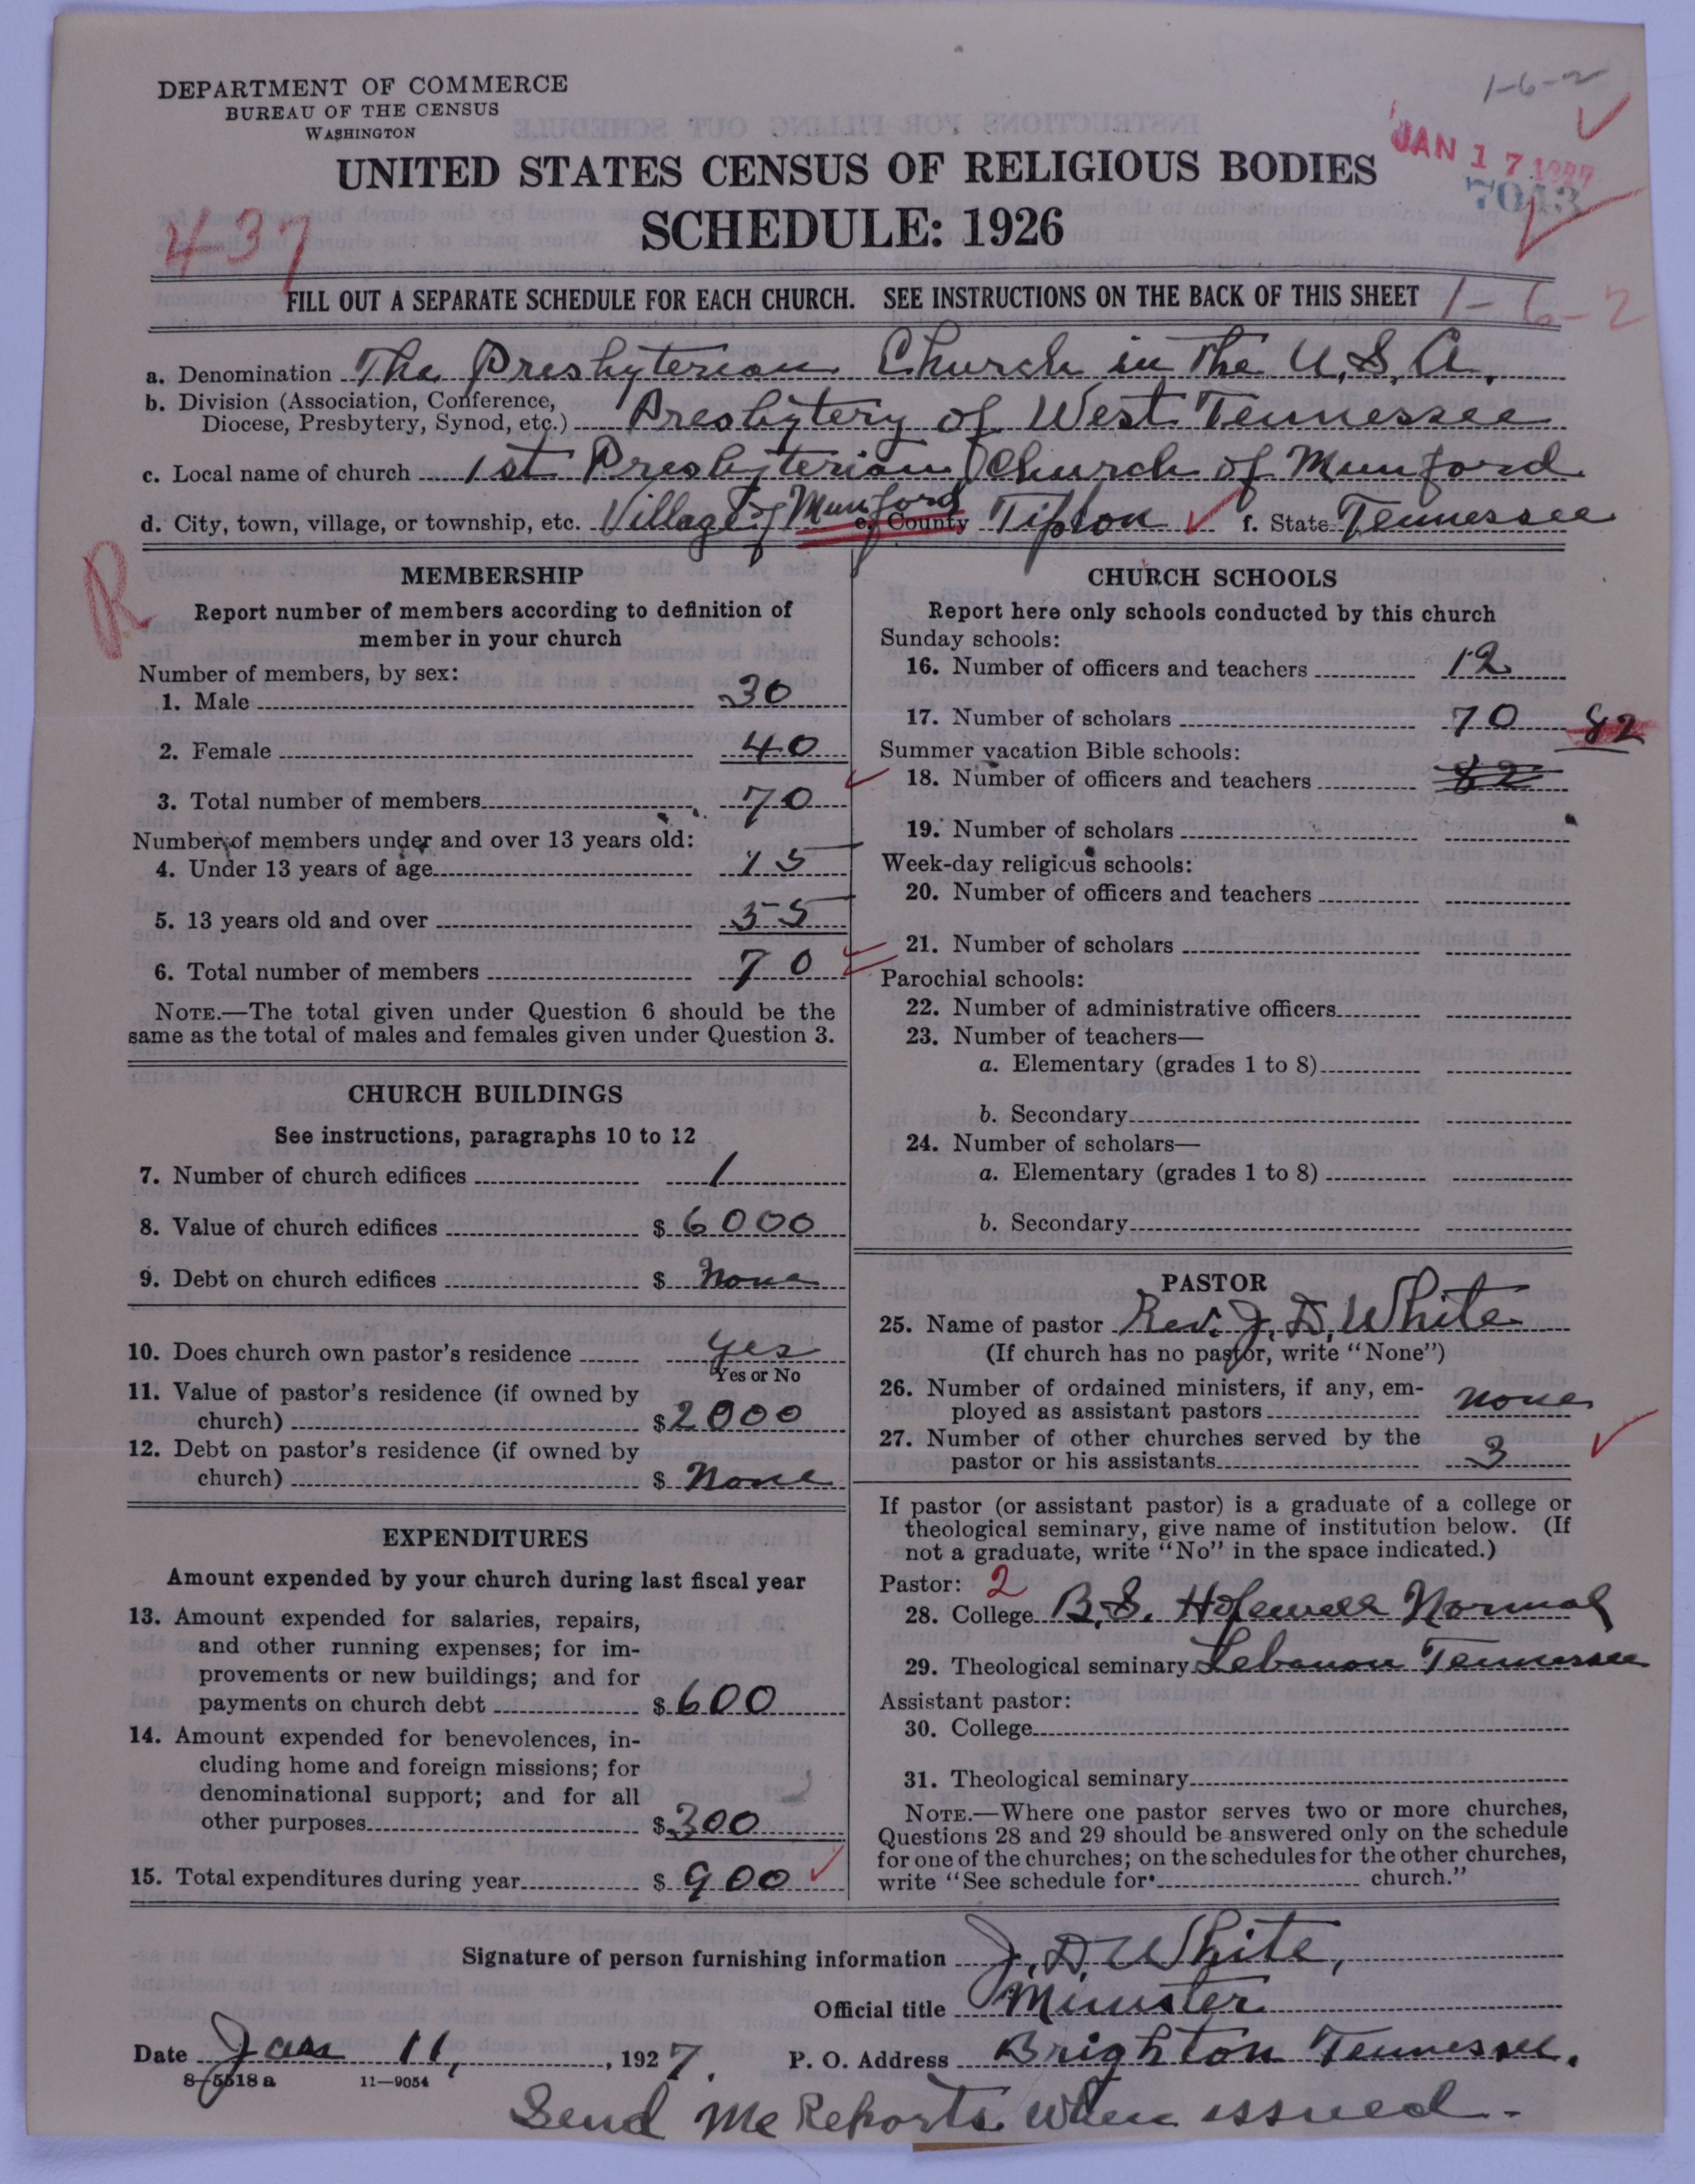 DEPARTMENT OF COMMERCE
BUREAU OF THE CENSUS
WASHINGTON
1-6-2
JAN 17 1927
7043
UNITED STATES CENSUS OF RELIGIOUS BODIES
SCHEDULE: 1926
437
FILL OUT A SEPARATE SCHEDULE FOR EACH CHURCH. SEE INSTRUCTIONS ON THE BACK OF THIS SHEET 1-6-2
a. Denomination The Presbyterian Church in the U.S.A.
b. Division (Association, Conference, Diocese, Presbytery, Synod, etc.) Presbytery of West Tennessee
c. Local name of church 1st Presbyterian Church of Munford
d. City, town, village, or township, etc. Village of Munford e. County Tipton f. State Tennessee
R
MEMBERSHIP
Report number of members according to definition of
member in your church
Number of members, by sex:
1. Male 30
2. Female 40
3. Total number of members 70
Number of members under and over 13 years old:
4. Under 13 years of age 15
5. 13 years old and over 55
6. Total number of members 70
NOTE.—The total given under Question 6 should be the
same as the total of males and females given under Question 3.
CHURCH BUILDINGS
See instructions, paragraphs 10 to 12
7. Number of church edifices 1
8. Value of church edifices $ 6000
9. Debt on church edifices $ None
10. Does church own pastor's residence yes
Yes or No
11. Value of pastor's residence (if owned by
church) $ 2000
12. Debt on pastor's residence (if owned by
church) $ None
EXPENDITURES
Amount expended by your church during last fiscal year
13. Amount expended for salaries, repairs,
and other running expenses; for im-
provements or new buildings; and for
payments on church debt $ 600
14. Amount expended for benevolences, in-
cluding home and foreign missions; for
denominational support; and for all
other purposes $ 300
15. Total expenditures during year $ 900
CHURCH SCHOOLS
Report here only schools conducted by this church
Sunday schools:
16. Number of officers and teachers 12
17. Number of scholars 70 82
Summer vacation Bible schools:
18. Number of officers and teachers 82
19. Number of scholars
Week-day religious schools:
20. Number of officers and teachers
21. Number of scholars
Parochial schools:
22. Number of administrative officers
23. Number of teachers—
a. Elementary (grades 1 to 8)
b. Secondary
24. Number of scholars—
a. Elementary (grades 1 to 8)
b. Secondary
PASTOR
25. Name of pastor Rev. J. D. White
(If church has no pastor, write "None")
26. Number of ordained ministers, if any, em-
ployed as assistant pastors none
27. Number of other churches served by the
pastor or his assistants 3
If pastor (or assistant pastor) is a graduate of a college or
theological seminary, give name of institution below. (If
not a graduate, write "No" in the space indicated.)
Pastor: 2
28. College B.S. Normal
29. Theological seminary Lebanon Tennessee
Assistant pastor:
30. College
31. Theological seminary
NOTE.—Where one pastor serves two or more churches,
Questions 28 and 29 should be answered only on the schedule
for one of the churches; on the schedules for the other churches,
write "See schedule for church."
Signature of person furnishing information J. D. White,
Official title Minister
Date Jan 11, 1927. P. O. Address Brighton Tennessee.
8-5518 a 11-9054
Send me Reports when issued.